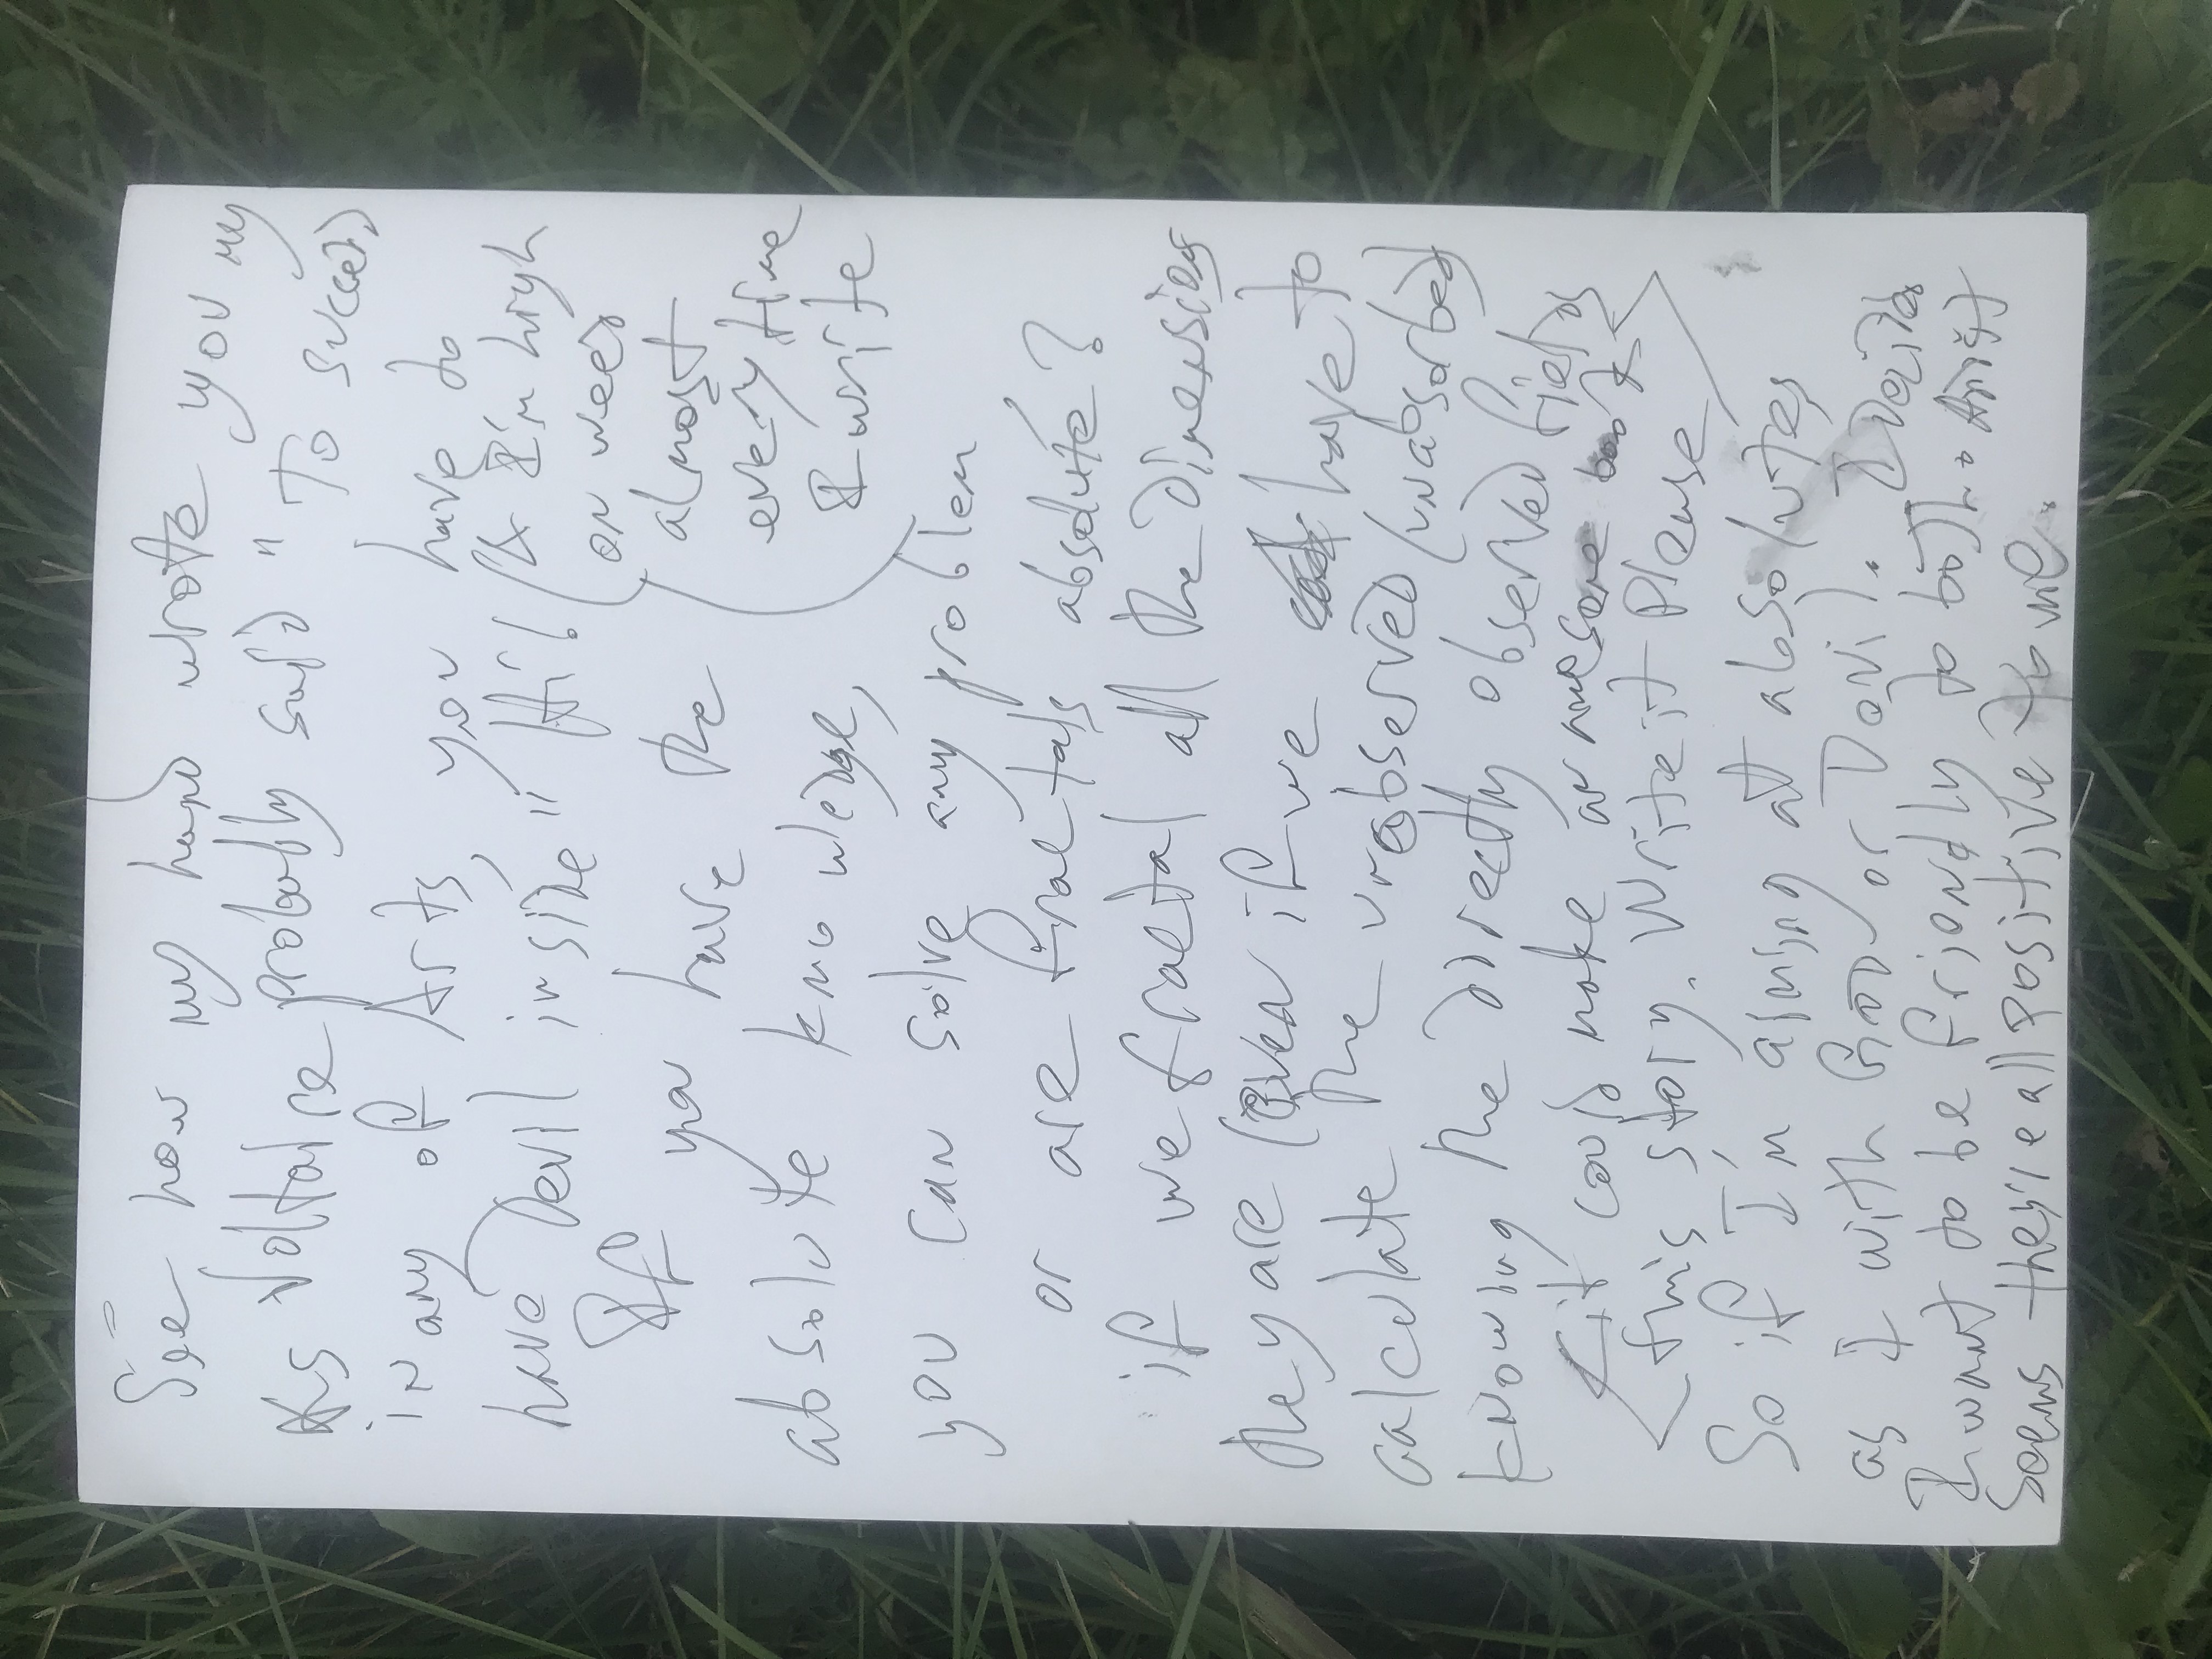 See how my hand wrote you my
As Voltaire probably said "To succeed
in any of Arts, you have to
have Devil inside" Hi!
(& I'm high
on weed
almost
every time
I write
If you have the
absolute knowledge,
you can solve any problem
or are fractals absolute?
if we fractal all the dimensions
they are (even if we have to
calculate the unobserved (unabsorbed)
knowing the directly observed fields
<it could make an awesome book>
<this story. Write it Please>
So if I'm aiming at absolutes
as I with God or Devil. I Decided
I want to be friendly to both. And it
seems they're all positive to me.